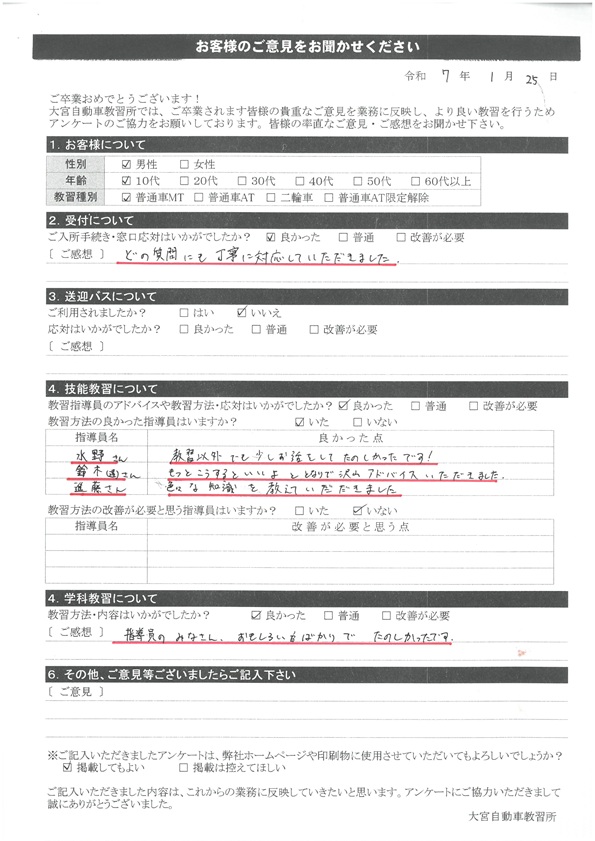 お客様のご意見をお聞かせください
令和 7 年 1 月 25 日
ご卒業おめでとうございます！
大宮自動車教習所では、ご卒業されます皆様の貴重なご意見を業務に反映し、より良い教習を行うため
アンケートのご協力をお願いしております。皆様の率直なご意見・ご感想をお聞かせ下さい。
1. お客様について
性別 ☑ 男性 □ 女性
年齢 ☑ 10代 □ 20代 □ 30代 □ 40代 □ 50代 □ 60代以上
教習種別 ☑ 普通車MT □ 普通車AT □ 二輪車 □ 普通車AT限定解除
2. 受付について
ご入所手続き・窓口応対はいかがでしたか？ ☑ 良かった □ 普通 □ 改善が必要
〔 ご感想 〕 どの質問にも丁寧に対応していただきました.
3. 送迎バスについて
ご利用されましたか？ □ はい ☑ いいえ
応対はいかがでしたか？ □ 良かった □ 普通 □ 改善が必要
〔 ご感想 〕
4. 技能教習について
教習指導員のアドバイスや教習方法・応対はいかがでしたか？ ☑ 良かった □ 普通 □ 改善が必要
教習方法の良かった指導員はいますか？ ☑ いた □ いない
指導員名 良かった点
水野さん 教習以外でも少しお話をしてたのしかったです!
鈴木 さん もっとこうするといいよ ととなりで沢山アドバイスいただきました.
近藤さん 色々な知識を教えていただきました
教習方法の改善が必要と思う指導員はいますか？ □ いた ☑ いない
指導員名 改善が必要と思う点
4. 学科教習について
教習方法・内容はいかがでしたか？ ☑ 良かった □ 普通 □ 改善が必要
〔 ご感想 〕 指導員のみなさん、おもしろい ばかりで たのしかったです.
6. その他、ご意見等ございましたらご記入下さい
〔 ご意見 〕
※ご記入いただきましたアンケートは、弊社ホームページや印刷物に使用させていただいてもよろしいでしょうか？
☑ 掲載してもよい □ 掲載は控えてほしい
ご記入いただきました内容は、これからの業務に反映していきたいと思います。アンケートにご協力いただきまして
誠にありがとうございました。
大宮自動車教習所